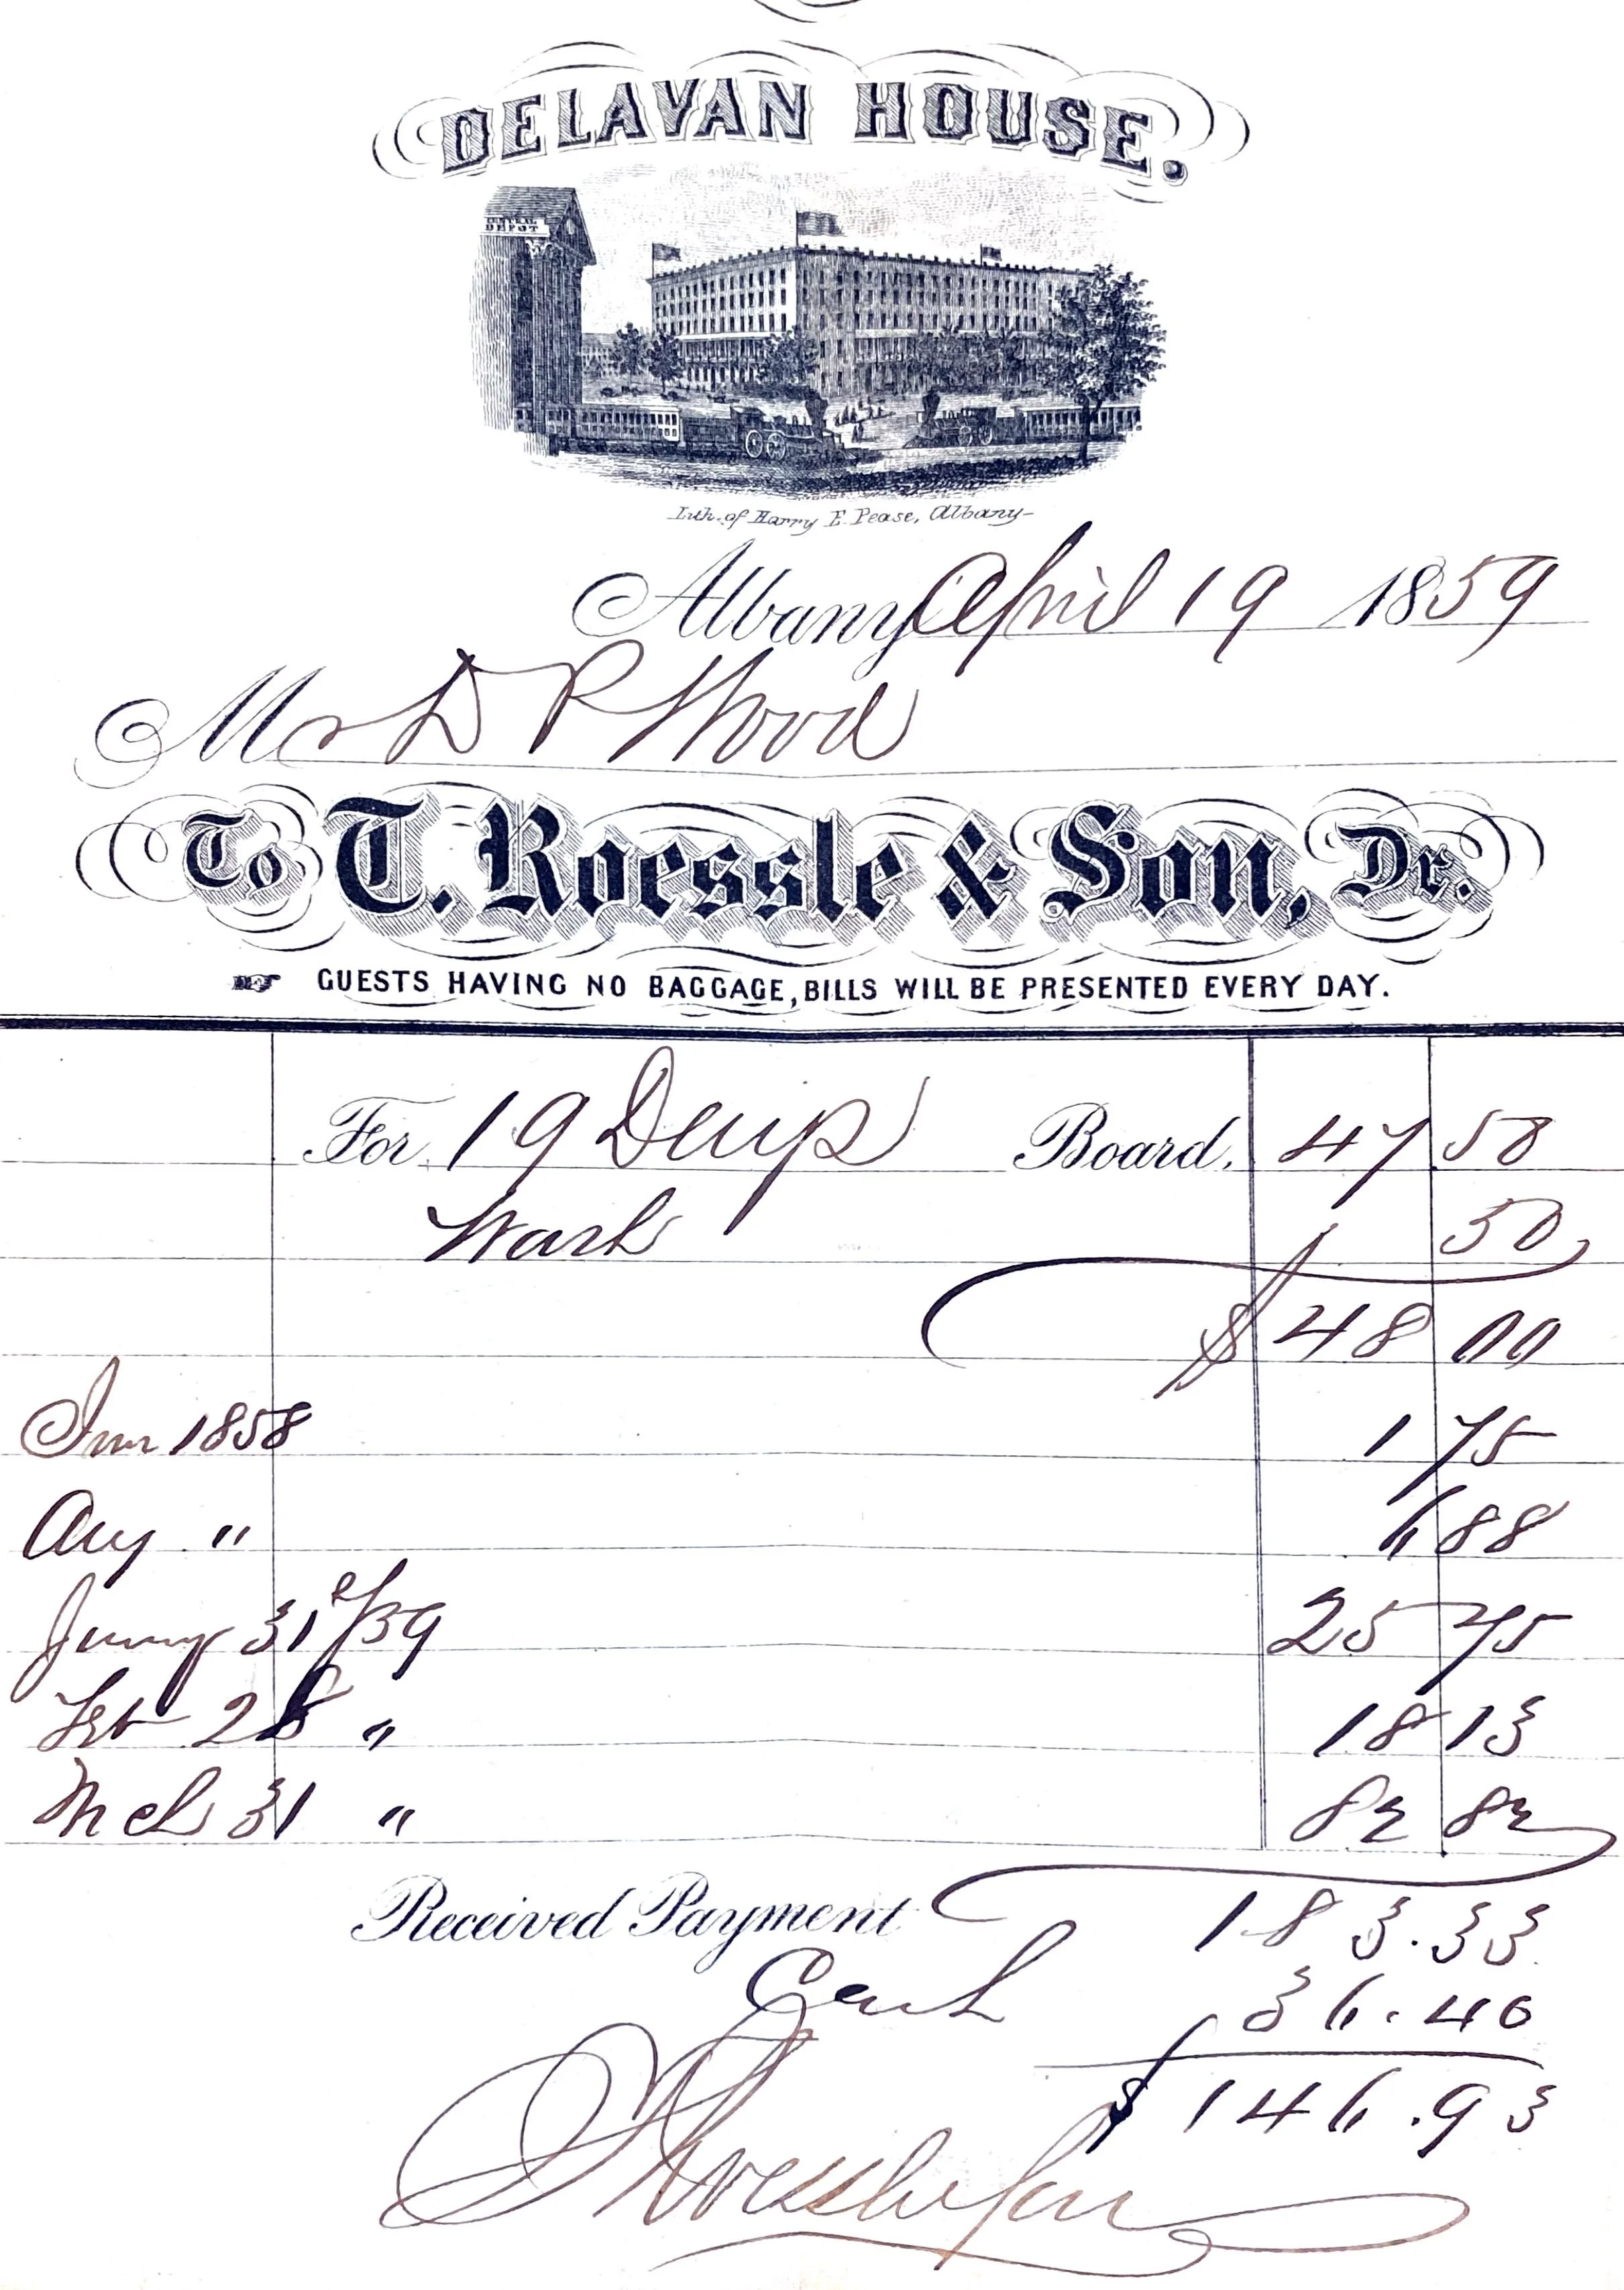 DELAVAN HOUSE.
CENTRAL DEPOT
Lith. of Harry E. Pease, Albany
Albany April 19 1859
Mr D P Wood
To T. Roessle & Son, Dr.
GUESTS HAVING NO BAGGAGE, BILLS WILL BE PRESENTED EVERY DAY.
For 19 Days Board. 47 58
Wash 50
$ 48 00
1858 1 75
Aug " 6 88
Jany 31st/59 25 75
Feb 28 " 18 13
Mch 31 " 82 82
Received Payment 183.33
Cash 36.40
$ 146.93
T Roessle & Son